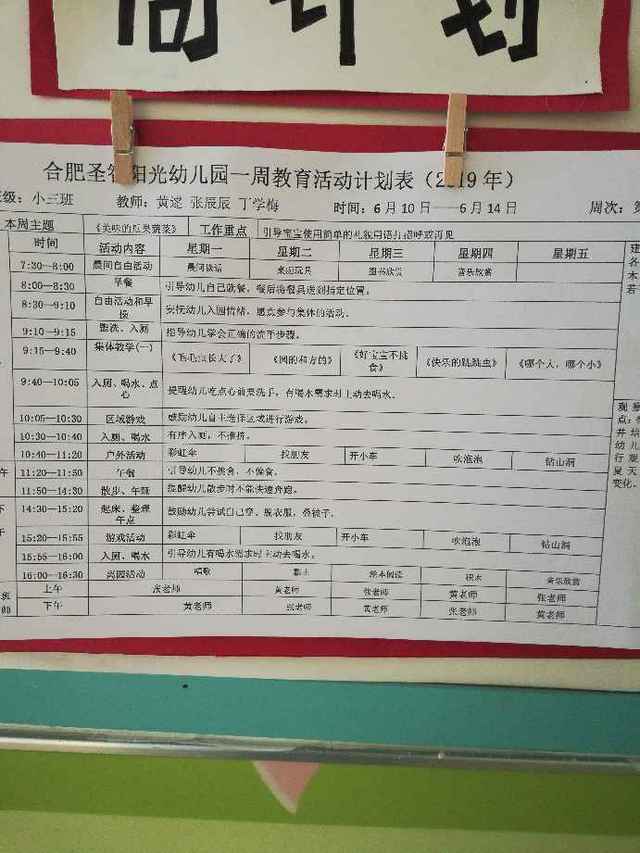 周计划
合肥圣 阳光幼儿园一周教育活动计划表（2019 年）
级：小三班 教师：黄逑 张辰辰 丁学梅 时间：6 月 10 日—6 月 14 日 周次：第
本周主题 《美味的瓜果蔬菜》 工作重点 引导宝宝使用简单的礼貌用语打招呼或再见
时间 活动内容 星期一 星期二 星期三 星期四 星期五
7:30—8:00 晨间自由活动 晨间谈话 桌面玩具 图书欣赏 音乐欣赏
8:00—8:30 早餐 引导幼儿自己就餐，餐后将餐具送到指定位置。
8:30—9:10 自由活动和早操 安抚幼儿入园情绪，愿意参与集体的活动。
9:10—9:15 盥洗、入厕 指导幼儿学会正确的洗手步骤。
9:15—9:40 集体教学(一) 《毛毛虫长大了》 《圆的和方的》 《好宝宝不挑食》 《快乐的跳跳虫》 《哪个大，哪个小》
9:40—10:05 入厕、喝水、点心 提醒幼儿吃点心前要洗手，有喝水需求时主动去喝水。
10:05—10:30 区域游戏 鼓励幼儿自主选择区域进行游戏。
10:30—10:40 入厕、喝水 有序入厕，不推挤。
10:40—11:20 户外活动 彩虹伞 找朋友 开小车 吹泡泡 钻山洞
午 11:20—11:50 午餐 引导幼儿不挑食，不偏食。
11:50—14:30 散步、午睡 提醒幼儿散步时不能快速奔跑。
下 14:30—15:20 起床、整理 午点 鼓励幼儿尝试自己穿、脱衣服，叠被子。
午 15:20—15:55 游戏活动 彩虹伞 找朋友 开小车 吹泡泡 钻山洞
15:55—16:00 入厕、喝水 引导幼儿有喝水需求时主动去喝水。
16:00—16:30 离园活动 唱歌 黏土 绘本阅读 积木 音乐欣赏
班 上午 张老师 黄老师 张老师 黄老师 张老师
师 下午 黄老师 张老师 黄老师 张老师 黄老师
建
各
木
若
观察
点：
并给
幼儿
行观
夏天
变化.